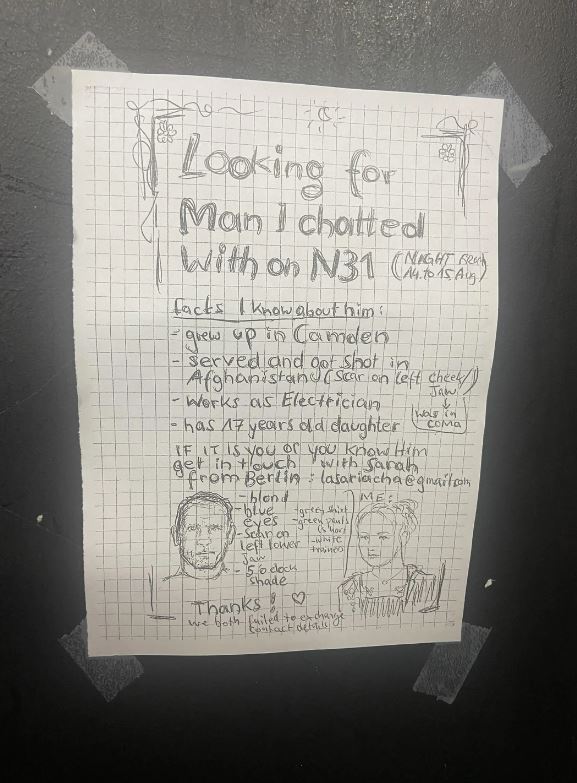 Looking for
Man I chatted
with on N31 (NIGHT
14. to 15 Aug)
facts I know about him:
- grew up in Camden
- served and got shot in
Afghanistan (scar on left cheek/
Jaw)
- Works as Electrician
↓
was in
COMA
- has 17 years old daughter
IF IT IS you or you know Him
get in touch with Sarah
from Berlin: lasariacha@gmail.com
- blond
- blue
eyes
- scar on
left lower
jaw
- 5 o'clock
shade
- green shirt
- green pants
(short)
- white
ME:
Thanks! ♡
we both failed to exchange
contact details